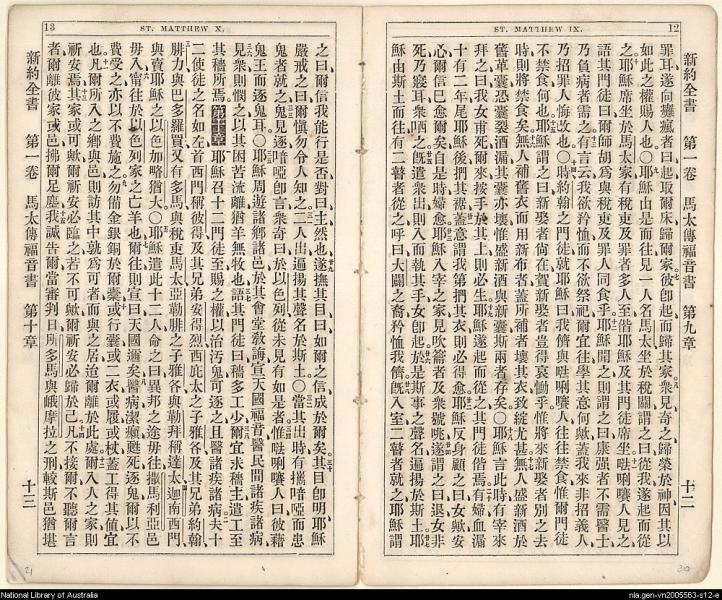 ST. MATTHEW IX.
12
新約全書 第一卷 馬太傳福音書 第九章 十二
罪耳遂向癱瘋者曰起取爾床歸爾家彼卽起而歸其家衆見奇之歸榮於神因其以
如此之權賜人也〇耶穌由是而往見一人名馬太坐於稅關謂之曰從我遂起而從
之耶穌席坐於馬太家有稅吏及罪者多人至偕耶穌及其門徒席坐唎嚷人見之
語其門徒曰爾師胡爲與稅吏及罪人同食乎耶穌聞之則謂之曰康强者不需醫士
乃負病者需之有言云我欲矜恤而不欲祭祀爾宜往學其意何歟蓋我來非招義人
乃招罪人悔改也〇時約翰之門徒就耶穌曰我儕與唎嚷人往往禁食惟爾門徒
不禁食何也耶穌謂之曰新娶者尙在賀新娶者豈得哀慟乎惟將來新娶者別之去
時則將禁食矣無人補舊衣而用新布者蓋所補者壞其衣致綻尤甚無人盛新酒於
舊革囊恐囊裂酒漏其囊亦壞惟盛新酒與新囊斯兩者存矣〇耶穌言此時有宰來
拜之曰我女甫死爾來按手於其上則必生耶穌遂起而從之其門徒偕焉有婦血漏
十有二年尾耶穌後捫其裾蓋意謂我第捫其衣則必得愈耶穌反身顧之曰女歟安
心爾信已愈爾矣自是時婦愈耶穌入宰之家見吹籥者及衆號咷遂謂之曰退女非
死乃寢耳衆哂之旣遣衆出則入而執其手女卽起於是斯事之聲名遍揚於斯土耶
穌由斯土而往有二瞽者從之呼曰大闢之裔矜恤我儕旣入室二瞽者就之耶穌謂
13
ST. MATTHEW X.
之曰爾信我能行是否對曰主然也遂撫其目曰如爾之信成於爾矣其目卽明耶穌
嚴戒之曰爾愼勿令人知之二人出遍揚其聲名於斯土〇當其出時有攜喑啞而患
鬼者就之鬼見逐喑啞卽言衆奇曰於以色列從未見有如是者惟唎嚷人曰彼藉
鬼王而逐鬼耳〇耶穌周遊諸鄉諸邑於其會堂敎誨宣天國福音醫民間諸疾諸病
見衆則憫之以其困苦流離猶羊無牧也語其門徒曰穡多工少爾宜求穡主遣工至
其穡所焉第十章耶穌召十二門徒至賜之權以治汚鬼可逐之且醫諸疾諸病夫十
二使徒之名如左首西門稱彼得及其兄弟安得烈西庇太之子雅各及其兄弟約翰
腓力與巴多羅買又有多馬與稅吏馬太亞勒腓之子雅各與勒拜稱達太迦南西門
與賣耶穌之以色加略猶大〇耶穌遣此十二人命之曰異邦之途毋往撒馬利亞邑
毋入甯往於以色列家之亡羊也爾往則宣曰天國邇矣醫病潔癩甦死逐鬼爾以不
費受之亦以不費施之勿備金銀銅於爾囊或行囊或二衣或屨或杖蓋工得其値宜
也凡爾所入之鄉與邑則訪其中孰爲可者而與之居迨爾離於此處爾入人之家則
祈安焉其家或可歟爾祈安必臨之若不可歟爾祈安必歸於己凡不接爾不聽爾言
者爾離彼家或邑拂爾足塵我誠告爾當審判日所多馬與峨摩拉之刑較斯邑猶堪
新約全書 第一卷 馬太傳福音書 第十章 十三
National Library of Australia
nla.gen-vn2005563-s12-e